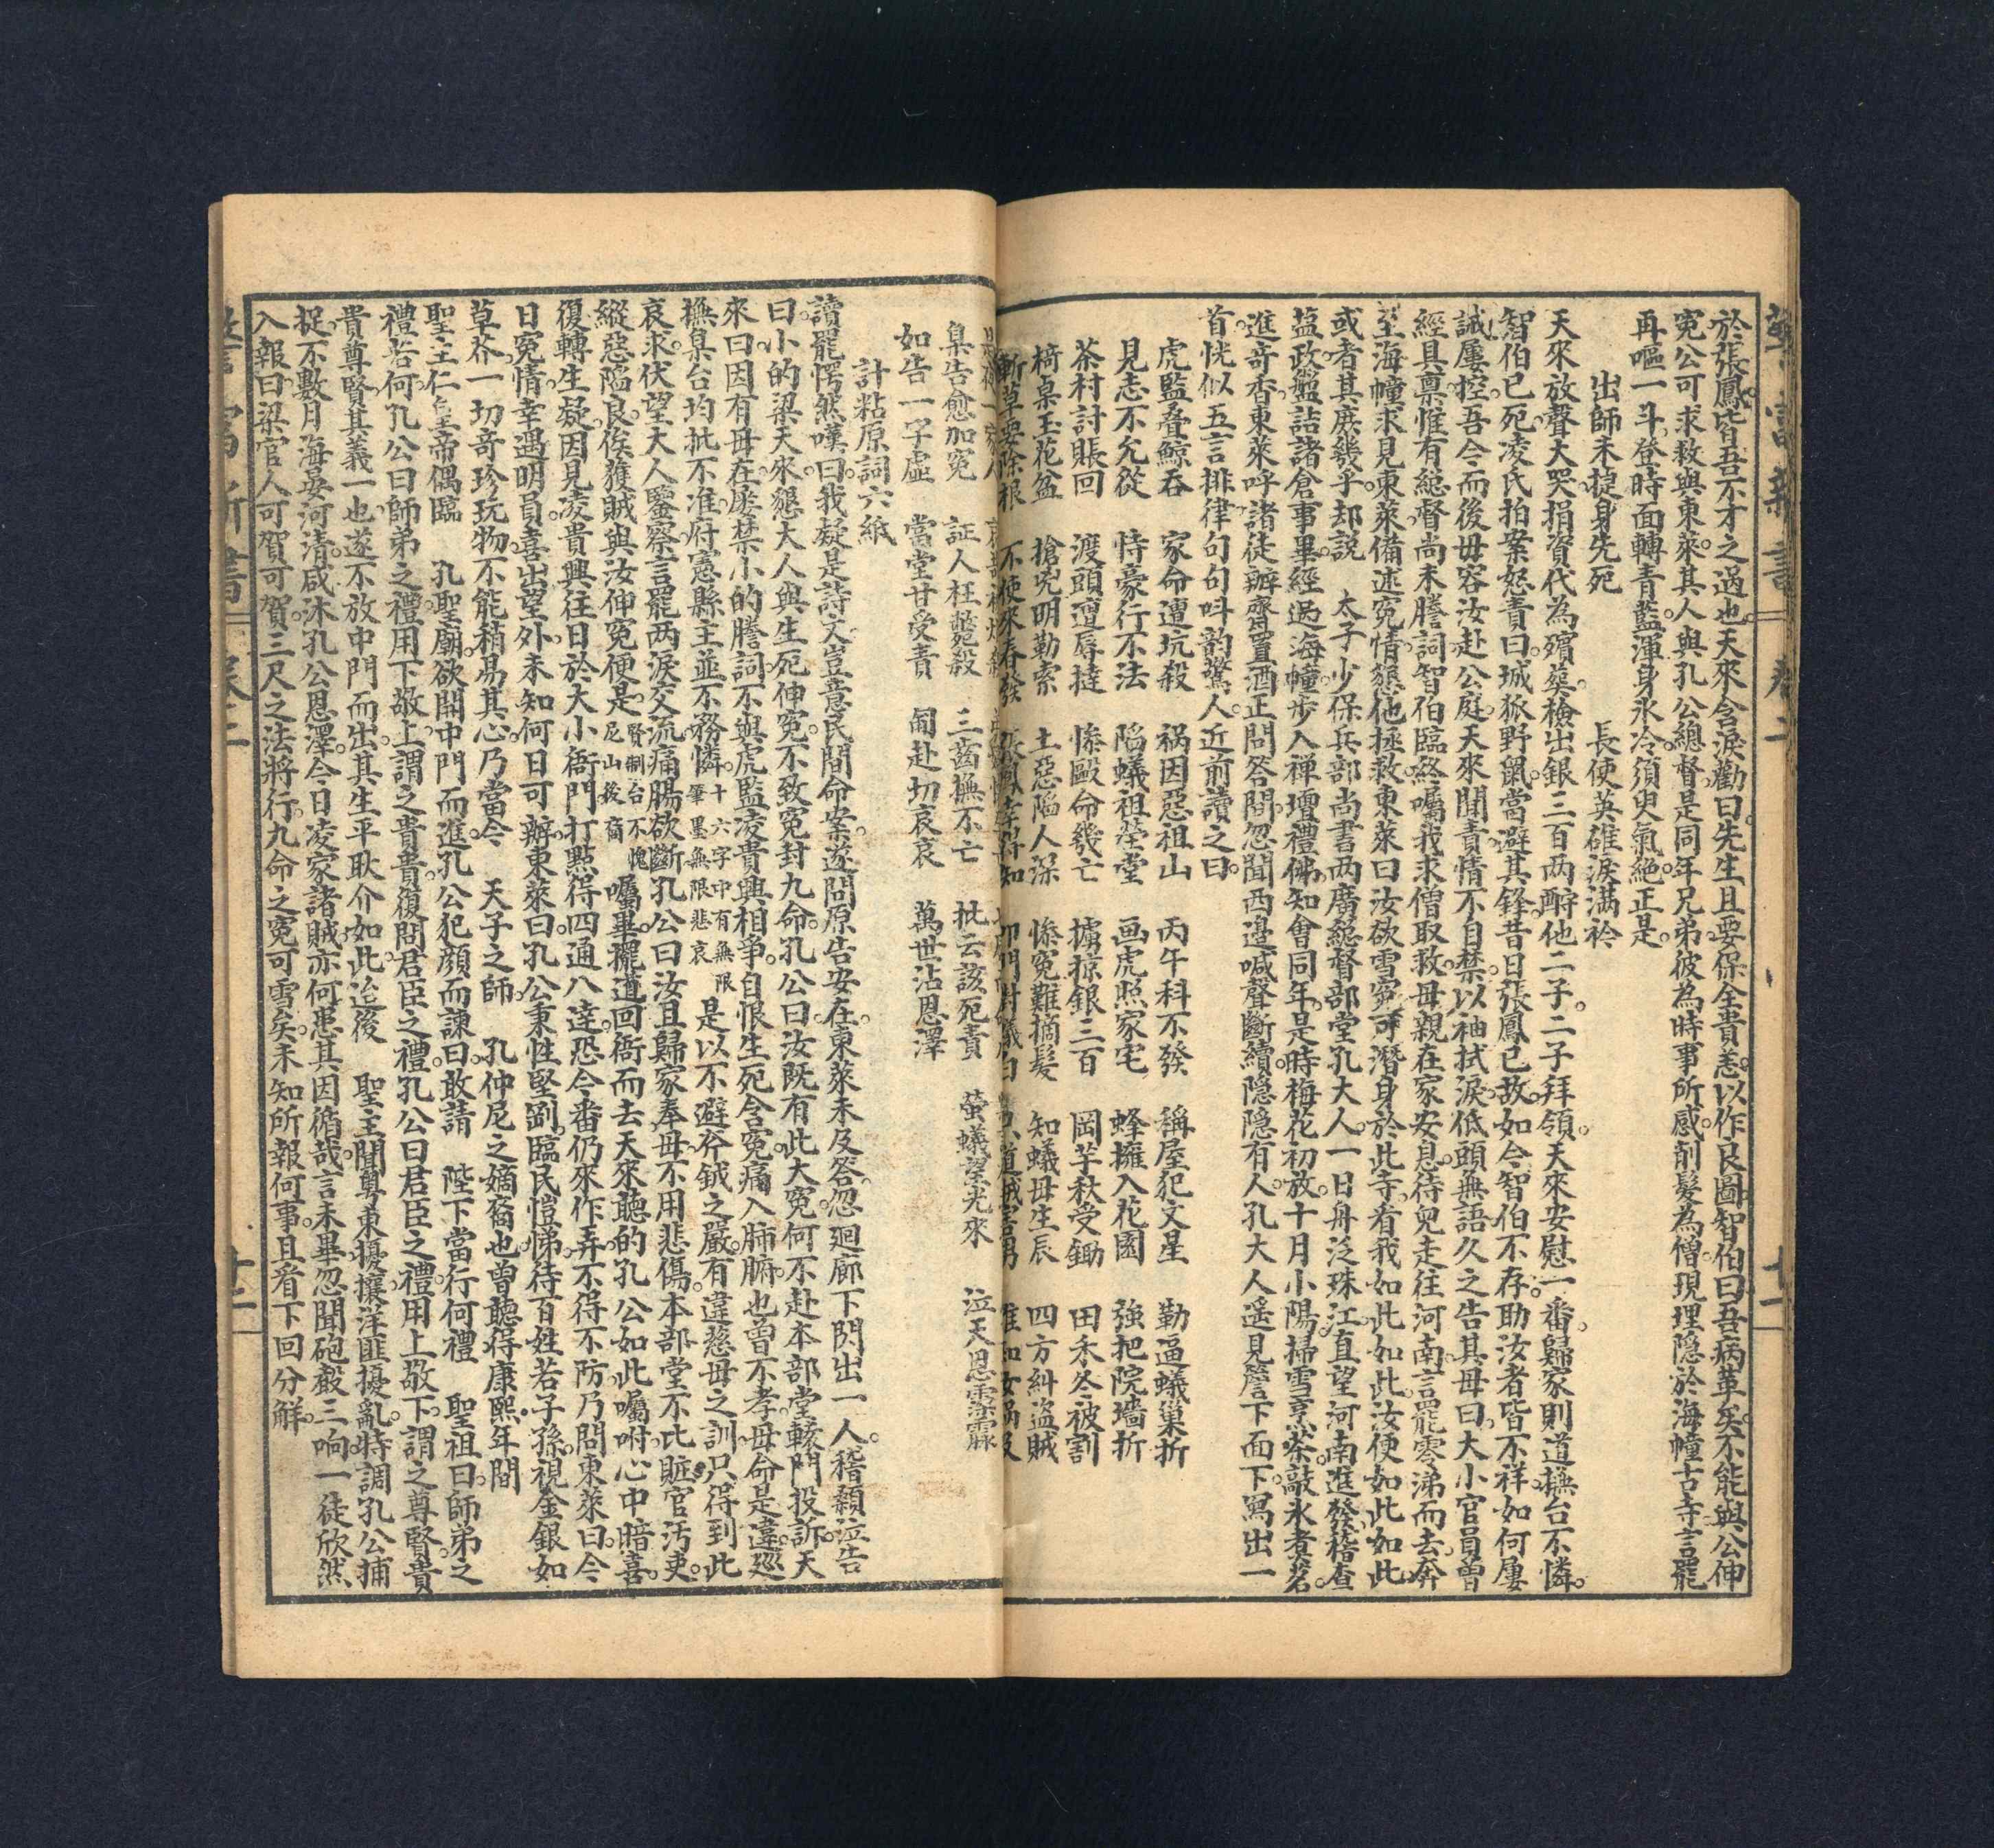 於張鳳皆吾不才之過也天來含淚勸曰先生且要保全貴恙以作良圖智伯曰吾病革矣不能與公伸
寃公可求救與東萊其人與孔公總督是同年兄弟彼為時事所感削髮為僧現埋隐於海幢古寺言罷
再嘔一斗登時面轉青藍渾身氷冷須臾氣絶正是
出師未捷身先死 長使英雄淚滿衿
天來放聲大哭捐資代為殯葬檢出銀三百两酧他二子二子拜領天來安慰一番歸家則道撫台不憐
智伯已死凌氏拍案怒責曰城狐野䑕當避其鋒昔日張鳳已故如今智伯不存助汝者皆不祥如何屢
誡屢控吾今而後毋容汝赴公庭天來聞責情不自禁以袖拭淚低頭無語久之告其母曰大小官員曾
經具禀惟有総督尚未謄詞智伯臨終囑我求僧取救母親在家安息待兒走往河南言罷零涕而去奔
至海幢求見東萊備述寃情懇他拯救東萊曰汝欲雪寃可潛身於此寺看我如此如此汝便如此如此
或者其庶幾乎却說 太子少保兵部尚書两廣総督部堂孔大人一日舟泛珠江直望河南進發稽查
盐政盤詰諸倉事畢經過海幢步入禅壇禮佛知會同年是時梅花初放十月小陽掃雪烹茶敲氷煑茗
進奇香東萊呼諸徒辦齋置酒正問答間忽聞西邊喊聲斷續隐隐有人孔大人遥見簷下面下寫出一
首恍似五言排律句句呌韵驚人近前讀之曰
虎監叠鯨吞 家命遭坑殺 禍因惡祖山 丙午科不發 稱屋犯文星 勒逼蟻巢折
見志不允從 恃豪行不法 陷蟻祖塋堂 画虎照家宅 蜂擁入花園 強把院墻折
茶村討賬回 渡頭遭辱撻 惨毆命幾亡 墟掠銀三百 岡芋秋受鋤 田禾冬被割
椅桌玉花盆 搶兇明勒索 土惡陷人深 惨寃難摘髮 知蟻母生辰 四方糾盜賊
斬草要除根 不使來春發
臬告愈加寃 証人枉斃殺 三齒撫不亡 批云該死責 螢蟻望光來 泣天恩霈霖
如告一字虛 當堂甘受責 匍赴切哀哀 萬世沾恩澤
計粘原詞六紙
讀罷愕然嘆曰我疑是詩文豈意民間命案遂問原告安在東萊未及答忽廻廊下閃出一人稽顙泣告
曰小的梁天來懇大人與生死伸寃不致寃封九命孔公曰汝既有此大寃何不赴本部堂轅門投訴天
來曰因有母在屡禁小的謄詞不與虎監凌貴興相爭自恨生死含寃痛入肺腑也曾不孝母命是違廵
撫臬台均批不准府憲縣主並不務憐十六字中有無限筆墨無限悲哀是以不避斧鉞之嚴有違慈母之訓只得到此
哀求伏望大人鑒察言罷两淚交流痛腸欲斷孔公曰汝且歸家奉母不用悲傷本部堂不比賍官汚吏
縱惡陷良俟獲賊與汝伸寃便是賢制台不愧尼山後裔囑畢擺道回衙而去天來聽的孔公如此囑咐心中暗喜
復轉生疑因見凌貴興往日於大小衙門打點得四通八達恐今番仍來作弄不得不防乃問東萊曰今
日寃情幸遇明員喜出望外未知何日可辦東萊曰孔公秉性堅劉臨民愷悌待百姓若子孫視金銀如
草芥一切奇珍玩物不能稍易其心乃當今 天子之師 孔仲尼之嫡裔也曾聽得康熙年間
聖主仁皇帝偶臨 孔聖廟欲開中門而進孔公犯顔而諫曰敢請 陛下當行何禮 聖祖曰師弟之
禮若何孔公曰師弟之禮用下敬上謂之貴貴復問君臣之禮孔公曰君臣之禮用上敬下謂之尊賢貴
貴尊賢其義一也遂不放中門而出其生平耿介如此迨後 聖主聞粤東擾攘洋匪擾亂特調孔公捕
捉不數月海晏河清咸沐孔公恩澤今日凌家諸賊亦何患其因循哉言未畢忽聞砲𢾾三响一徒欣然
入報曰梁官人可賀可賀三尺之法將行九命之寃可雪矣未知所報何事且看下回分觧